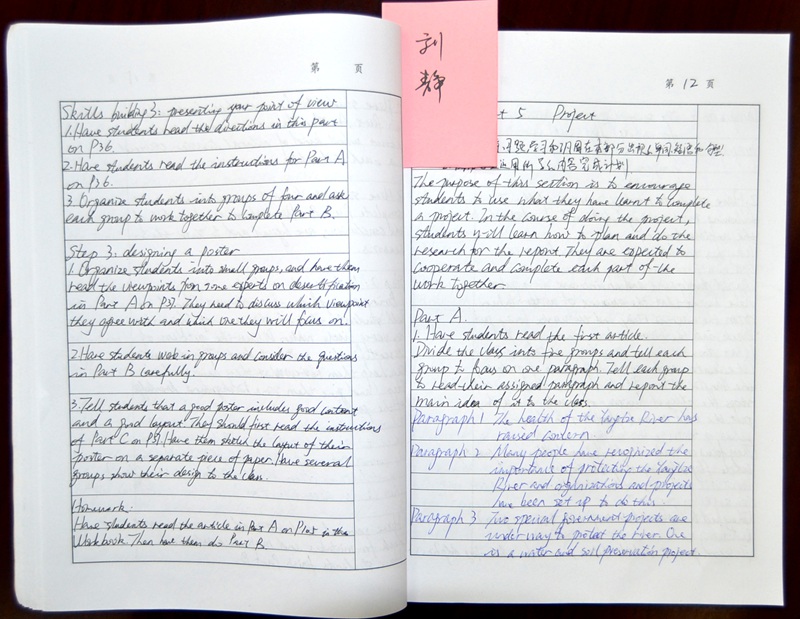 第 页
Skills building 3: presenting your point of view
1. Have students read the directions in this part
on P36.
2. Have students read the instructions for Part A
on P36.
3. Organize students into groups of four and ask
each group to work together to complete Part B.
Step 3: designing a poster
1. Organize students into small groups, and have them
read the viewpoints from some experts on desertification
in Part A on P37. They need to discuss which viewpoint
they agree with and which one they will focus on.
2. Have students work in groups and consider the questions
in Part B carefully.
3. Tell students that a good poster includes good content
and a good layout. They should first read the instructions
of Part C on P37. Have them sketch the layout of their
poster on a separate piece of paper. Have several
groups show their design to the class.
Homework:
Have students read the article in Part A on in the
Workbook. Then have them do Part B.
刘
静
第 12 页
5 Project
The purpose of this section is to encourage
students to use what they have learnt to complete
a project. In the course of doing the project,
students will learn how to plan and do the
research for the report. They are expected to
cooperate and complete each part of the
work together
Part A.
1. Have students read the first article.
Divide the class into five groups and tell each
group to focus on one paragraph. Tell each group
to read their assigned paragraph and report the
main idea of it to the class.
Paragraph 1 The health of the Yangtze River has
raised concern
Paragraph 2 Many people have recognized the
importance of protecting the Yangtze
River and organizations and projects
have been set up to do this
Paragraph 3 Two special government projects are
under way to protect the river. One
is a water and soil preservation project.